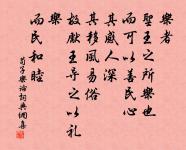 樂者
聖王之所樂也
而可以善民心
其感人深
其移風易俗
故獻王導之以禮
樂
而民和睦
荀子樂論詞典網集